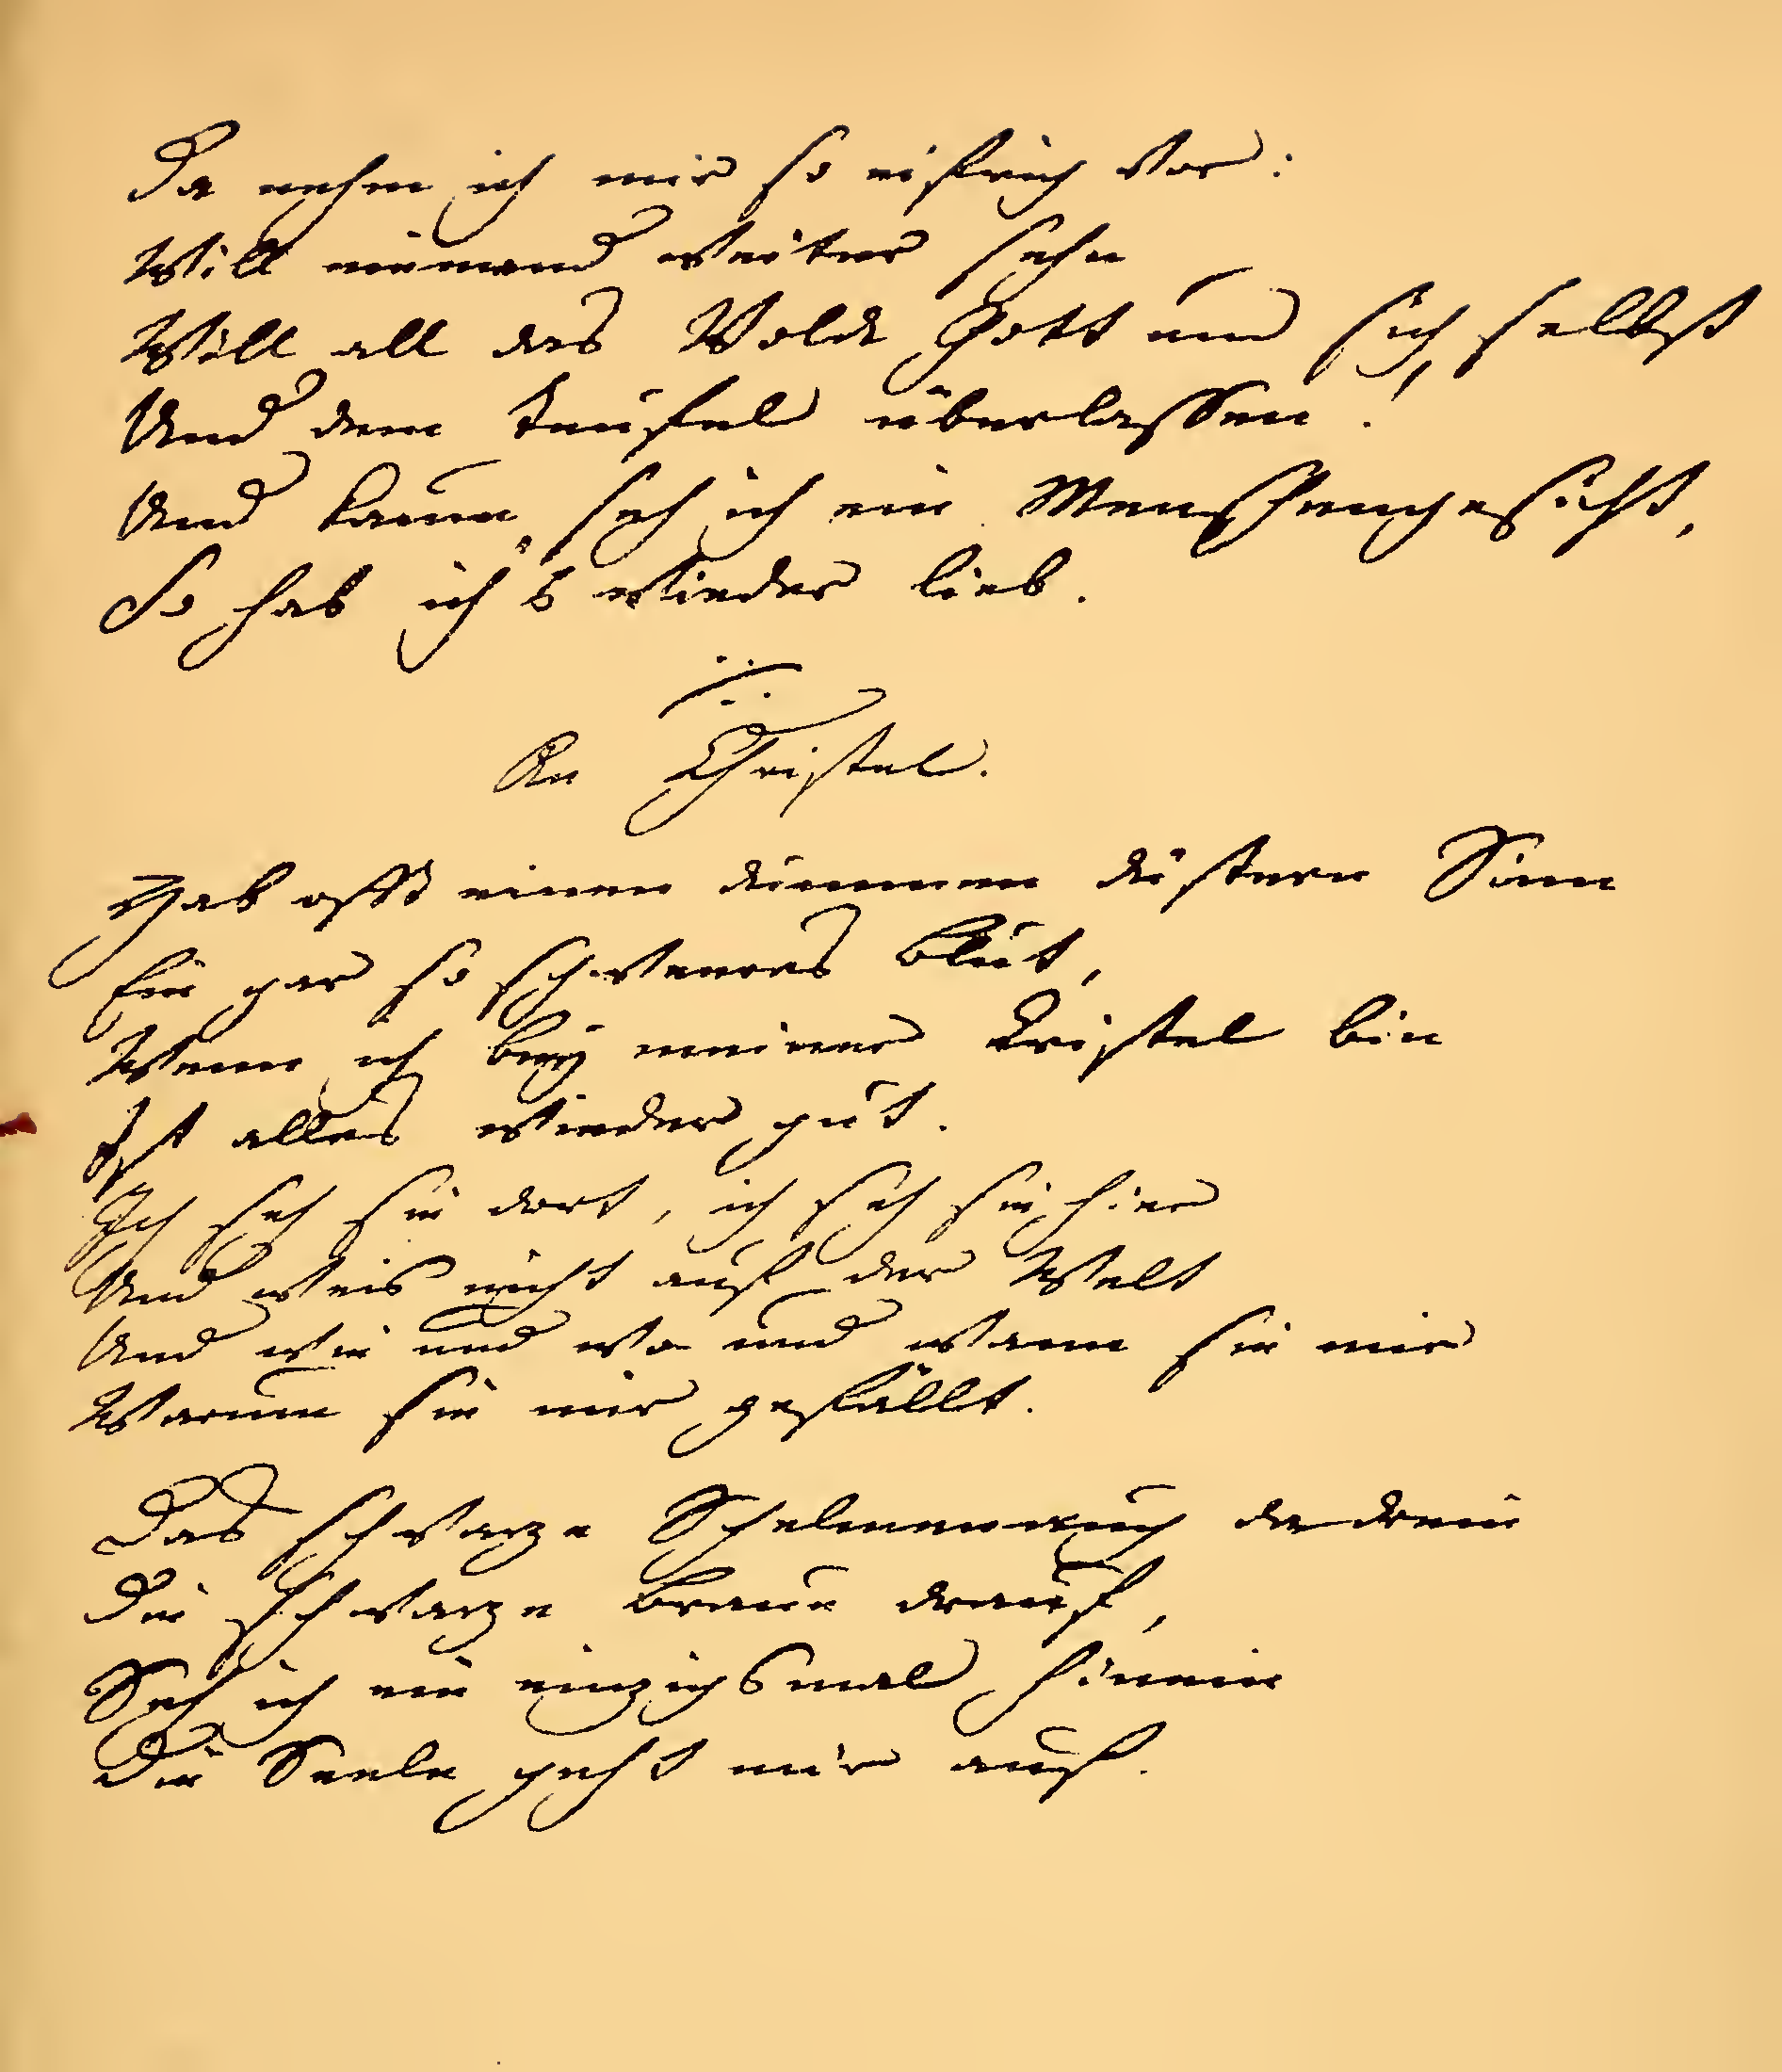 Da nehm ich mir so eifrich vor:
Will niemand weiter sehn
Will all das Volck Gott und sich selbst
Und dem Teufel überlassen!
Und kaum seh ich ein Menschengesicht,
So hab ich's wieder lieb.
An Christel.
Hab offt einen dummen düstern Sinn
Ein gar so schweeres Blut,
Wenn ich bey meiner Cristel bin
Ist alles wieder gut.
Ich seh sie dort, ich seh sie hier
Und weis nicht auf der Welt
Und wie und wo und wann sie mir
Warum sie mir gefällt.
Das schwarze Schelmenaug dadrein
Die schwarze Braue drauf,
Seh ich ein einzigsmal hinein
Die Seele geht mir auf.